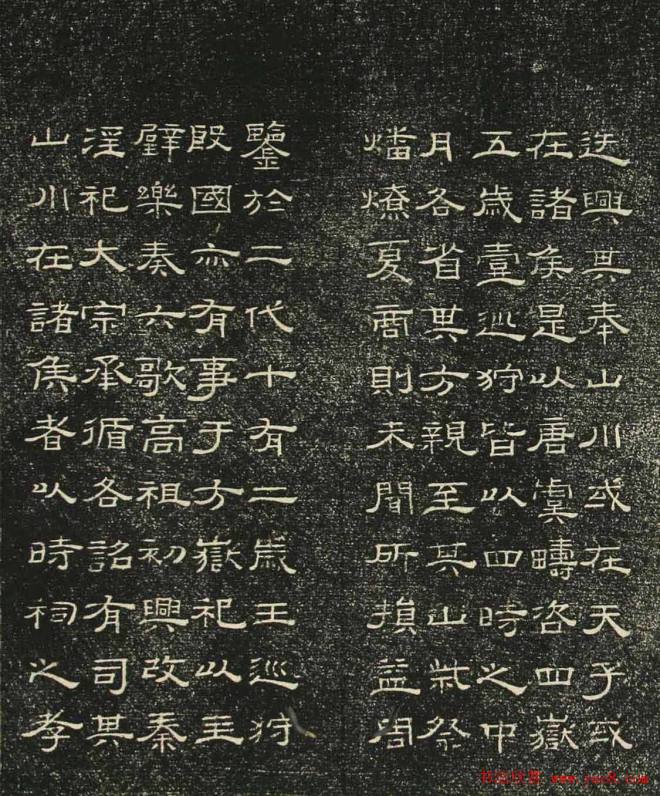 迭興其奉山川或在天子或
在諸侯是以唐虞疇咨四嶽
五歲壹巡狩皆以四時之中
月各省其方親至其山柴祭
燔燎夏商則未聞所損益周
鑒於二代十有二歲王巡狩
殷國亦有事于方嶽祀以圭
璧樂奏六歌高祖初興改秦
淫祀大宗承循各詔有司其
山川在諸侯者以時祠之孝
书法欣赏 www.yac8.com